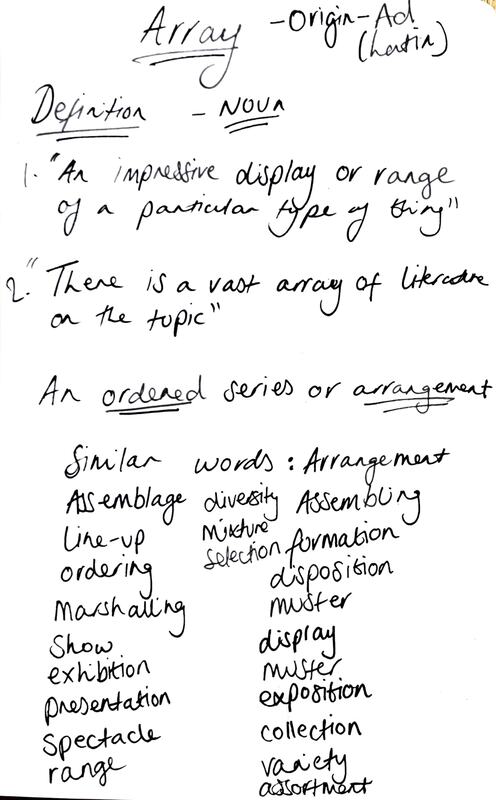 Array - Origin - Ad
(Latin)
Definition - Noun
1. "An impressive display or range
of a particular type of thing"
2. "There is a vast array of literature
on the topic"
An ordered series or arrangement
Similar words : Arrangement
Assemblage diversity Assembling
Line-up mixture formation
ordering selection disposition
Marshalling muster
Show display
exhibition muster
presentation exposition
Spectacle collection
range variety
assortment